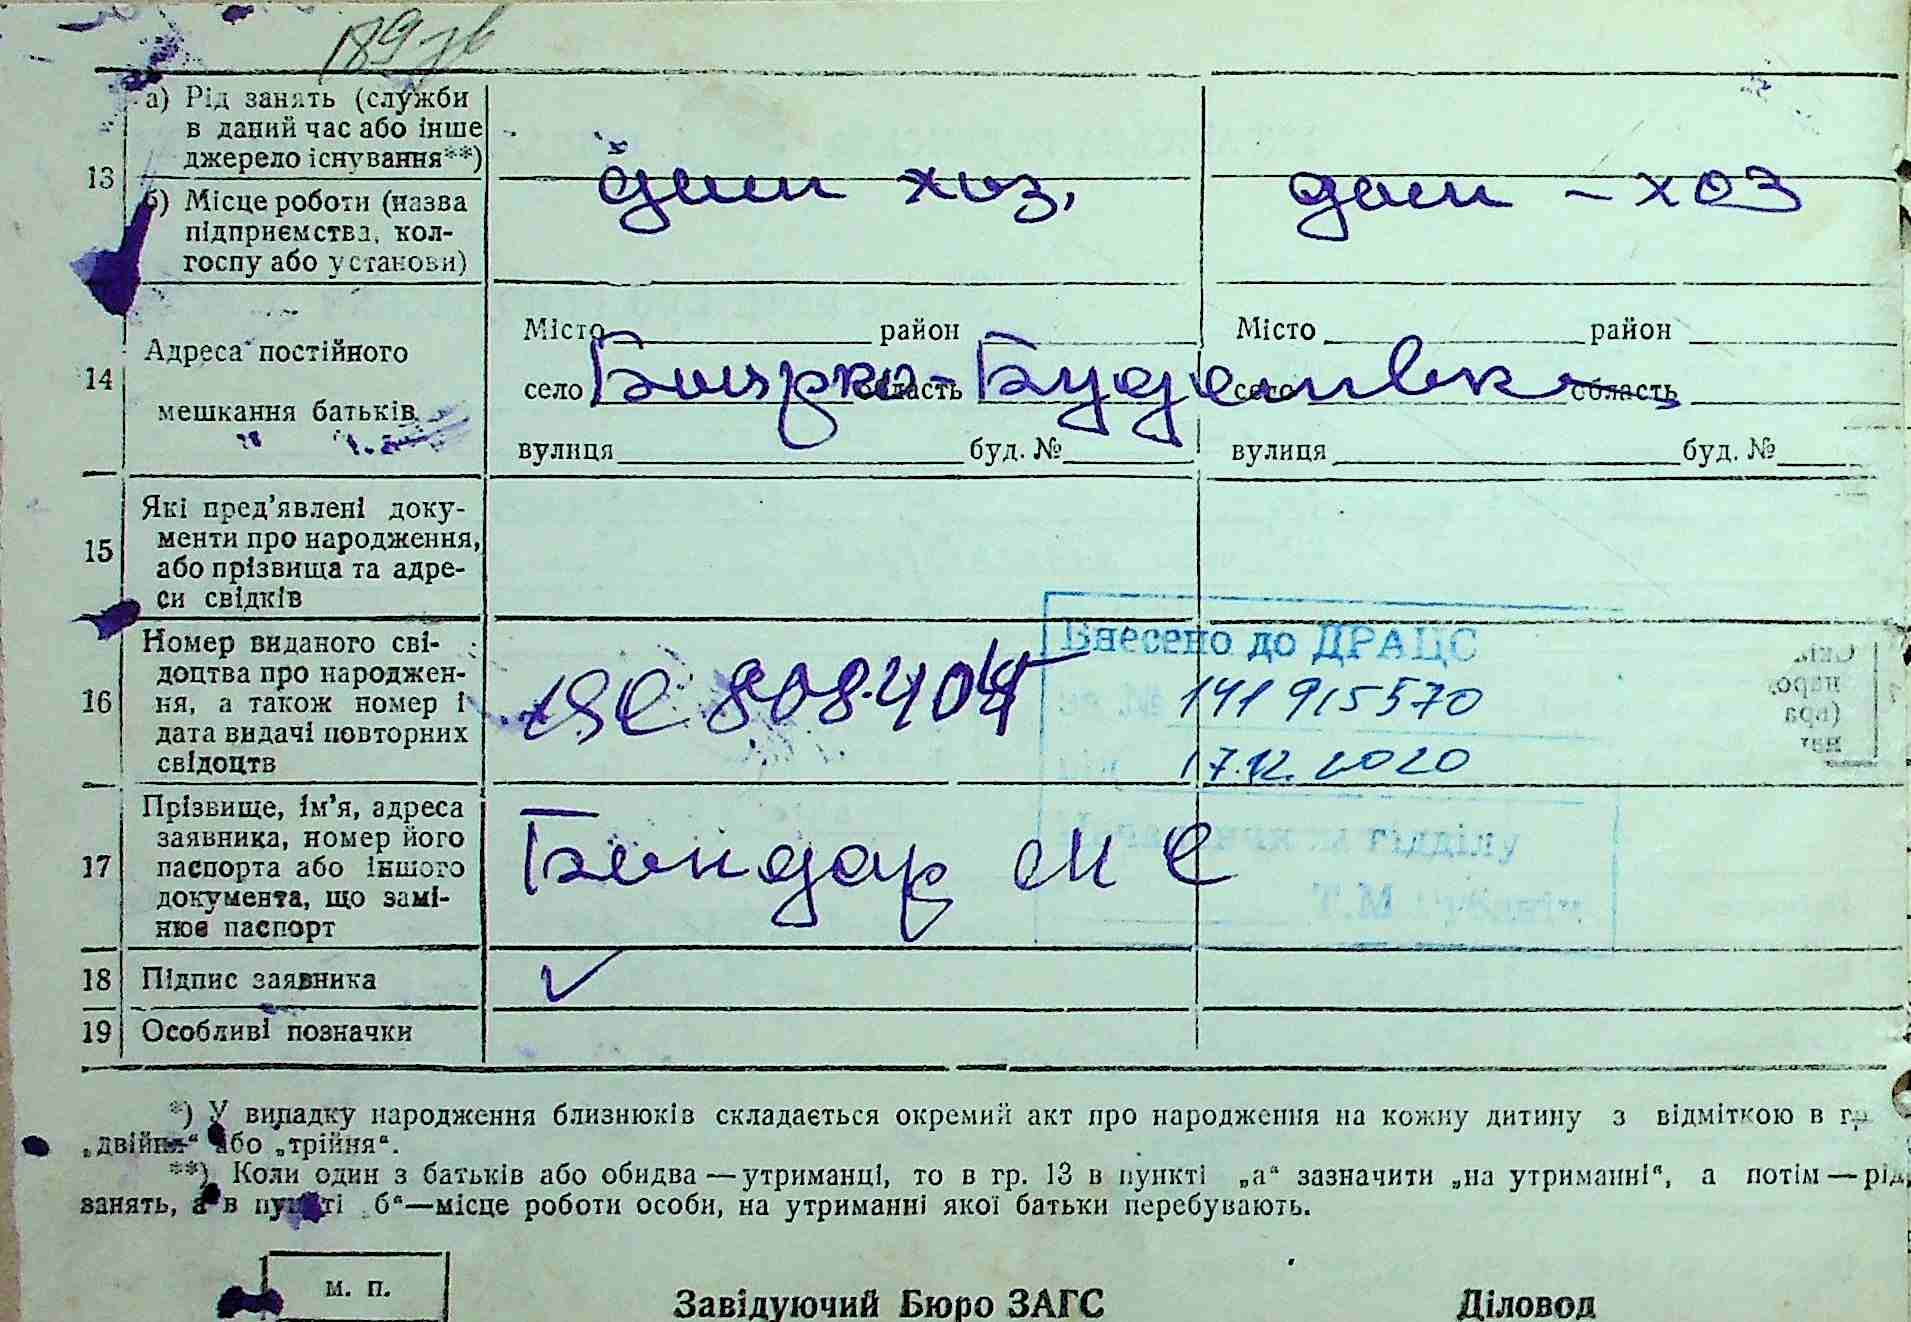 189
а) Рід занять (служби
в даний час або інше
джерело існування**)
13
б) Місце роботи (назва
підприємства, кол-
госпу або установи)
дом хоз,
дом - хоз
14
Адреса постійного
мешкання батьків
Місто район
село область
вулиця буд. №
Місто район
село область
вулиця буд. №
15
Які пред'явлені доку-
менти про народження,
або прізвища та адре-
си свідків
16
Номер виданого сві-
доцтва про народжен-
ня, а також номер і
дата видачі повторних
свідоцтв
Внесено до ДРАЦС
141 915570
17.12.2020
17
Прізвище, ім'я, адреса
заявника, номер його
паспорта або іншого
документа, що замі-
нює паспорт
Бондар М С
18 Підпис заявника
19 Особливі позначки
*) У випадку народження близнюків складається окремий акт про народження на кожну дитину з відміткою в гр.
„двійня“ або „трійня“.
**) Коли один з батьків або обидва — утриманці, то в гр. 13 в пункті „а“ зазначити „на утриманні“, а потім — рід
занять, а в пункті б“—місце роботи особи, на утриманні якої батьки перебувають.
м. п.
Завідуючий Бюро ЗАГС
Діловод